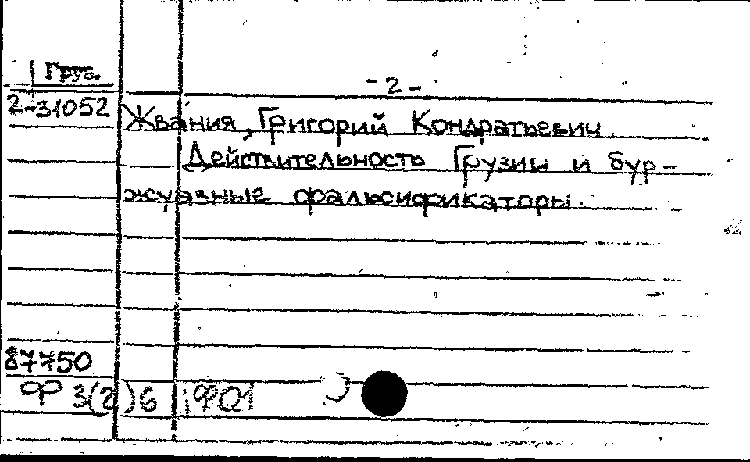 Груз.
- 2 -
2-31052
Жвания, Григорий Кондратьевич
Действительность Грузии и бур-
жуазные фальсификаторы.
87750
Ф 3(2)6 ФО1